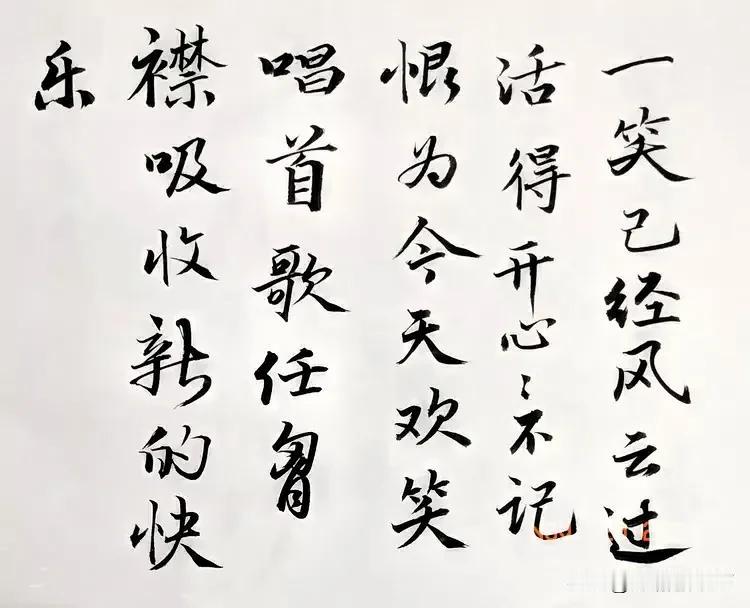 一笑已经风云过
活得开心々不记
恨为今天欢笑
唱首歌任胷
襟吸收新的快
乐